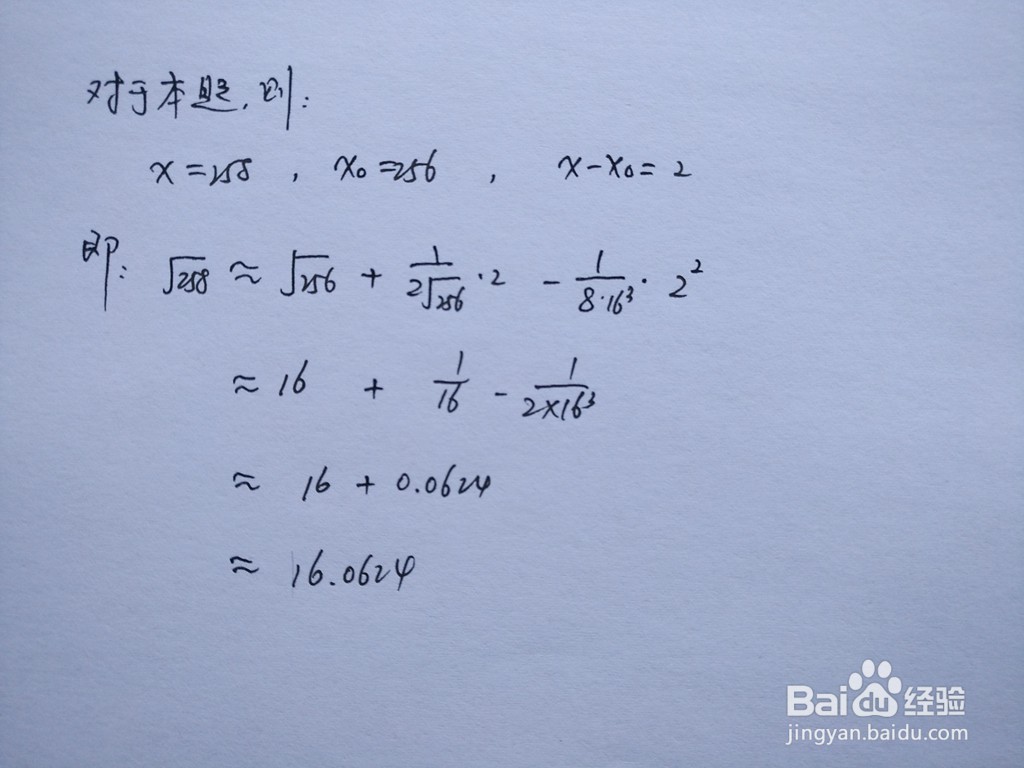 对于本题,则:
x=258 , x₀=256 , x-x₀=2
即: √258 ≈ √256 + 1/(2√256)·2 - 1/(8·16³)·2²
≈ 16 + 1/16 - 1/(2×16³)
≈ 16 + 0.0624
≈ 16.0624
Baidu 经验
jingyan.baidu.com